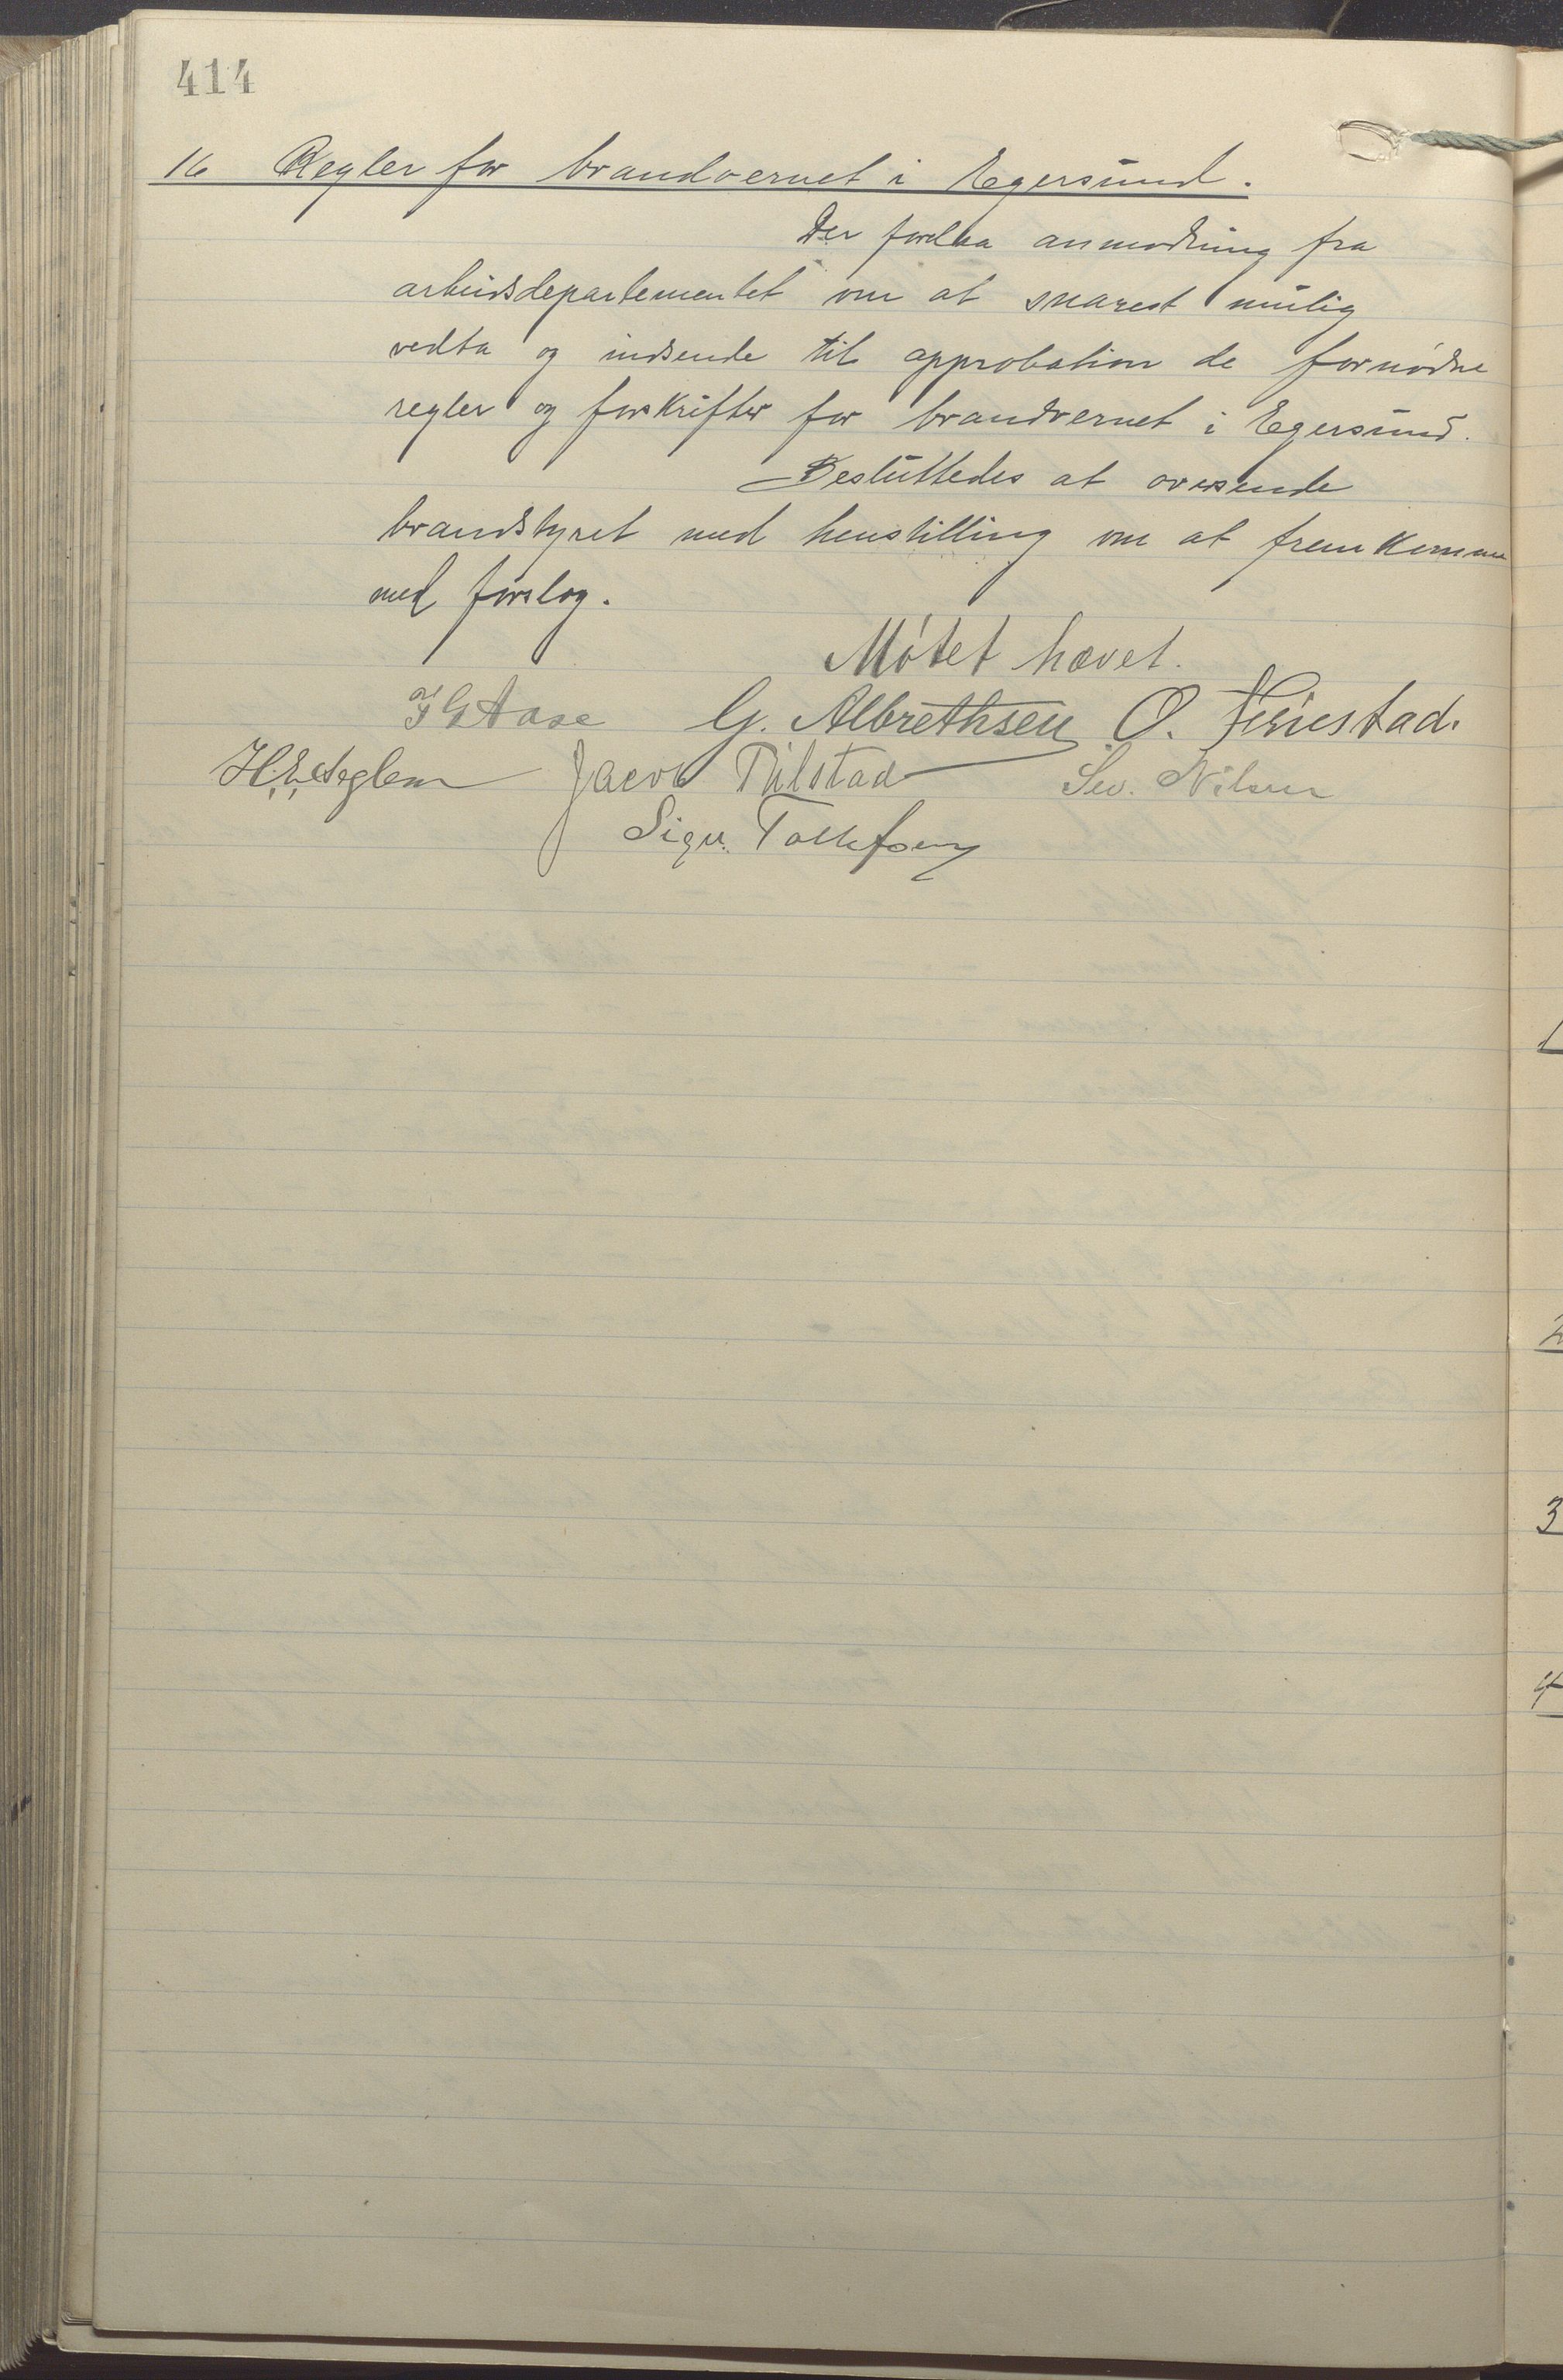 414
16 Regler for brandvernet i Egersund.
Der forelaa anmodning fra
arbeidsdepartementet om at snarest mulig
vedta og indsende til approbation de fornødne
regler og forskrifter for brandvernet i Egersund.
Besluttedes at oversende
brandstyret med henstilling om at fremkomme
med forslag.
Møtet hævet.
G. Albrethsen O. Feriestad.
H. E. Seglem Jacob Pilstad Sev. Nilsen
Sigv. Tollefsen
1
2
3
4